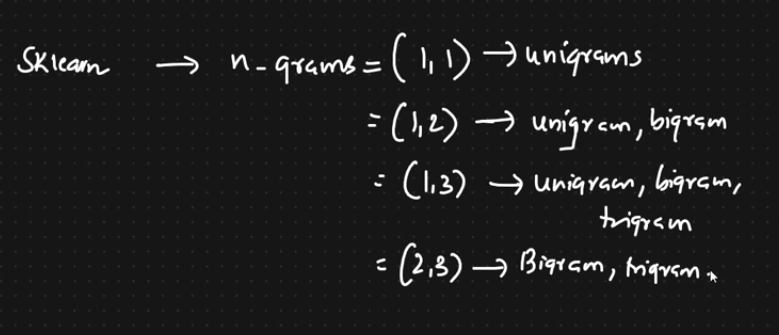 Sklearn → n-grams = (1,1) → unigrams
= (1,2) → unigram, bigram
= (1,3) → unigram, bigram,
trigram
= (2,3) → Bigram, trigram.